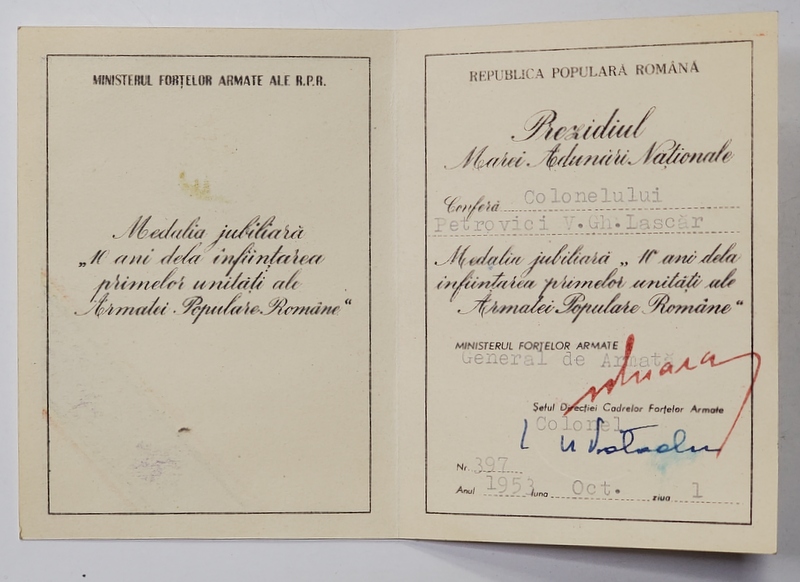 MINISTERUL FORȚELOR ARMATE ALE R.P.R.
Medalia jubiliară
„10 ani dela înființarea
primelor unități ale
Armatei Populare Române“
REPUBLICA POPULARĂ ROMÂNĂ
Prezidiul
Marei Adunări Naționale
Conferă Colonelului
Petrovici V.Gh.Lascăr
Medalia jubiliară „10 ani dela
înființarea primelor unități ale
Armatei Populare Române“
MINISTERUL FORȚELOR ARMATE
General de Armată
Șeful Direcției Cadrelor Forțelor Armate
Colonel
Nr. 397
Anul 1953 luna Oct. ziua 1